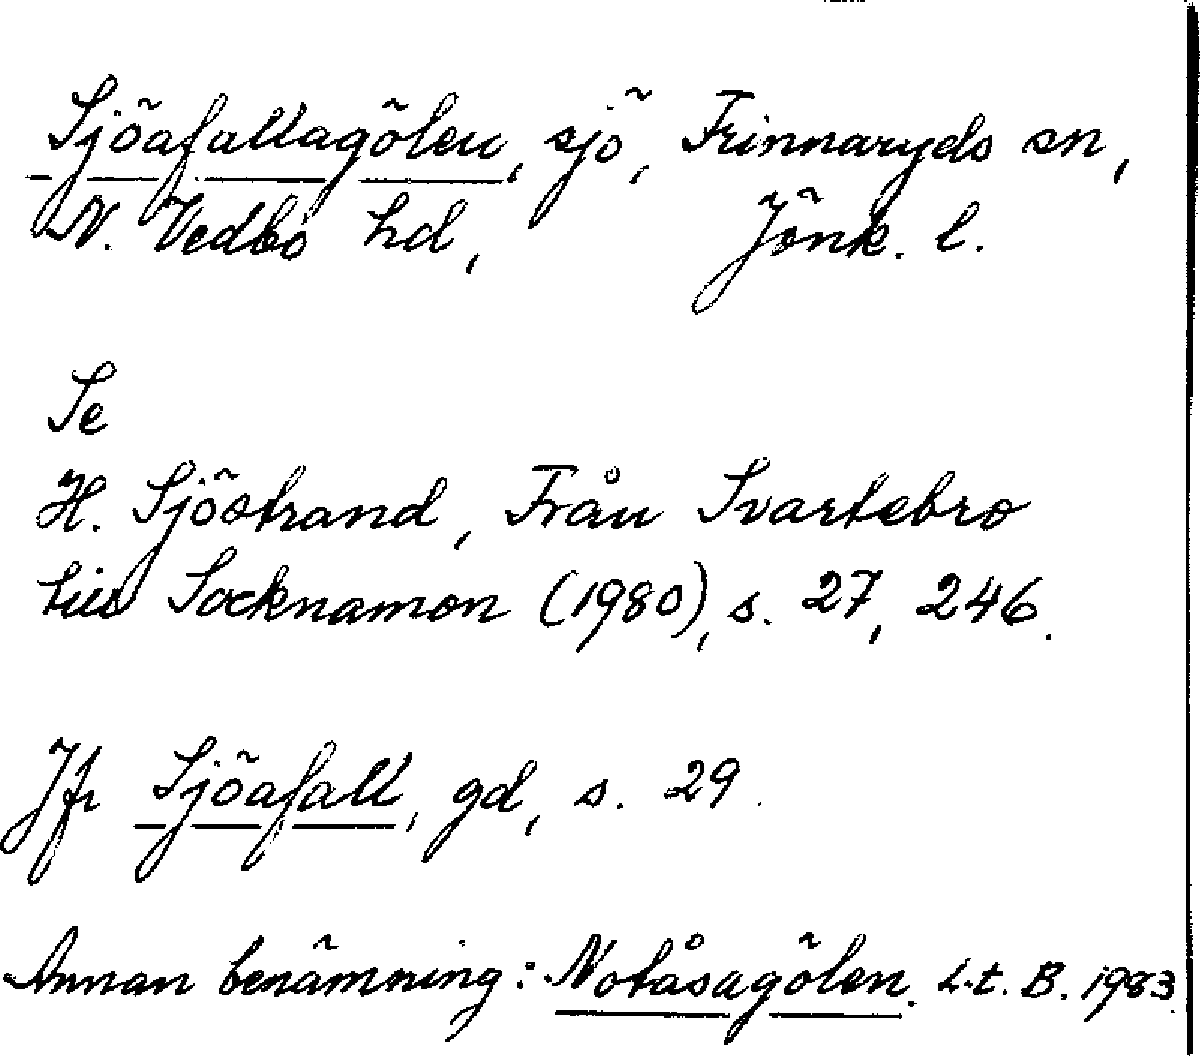 Sjöafallagölen, sjö, Frinnaryds sn,
N. Vedbo hd, Jönk. l.
Se
H. Sjöstrand, Från Svartebro
till Socknamon (1980), s. 27, 246.
Jfr Sjöafall, gd, s. 29.
Annan benämning: Notåsagölen. L.t. B. 1983.